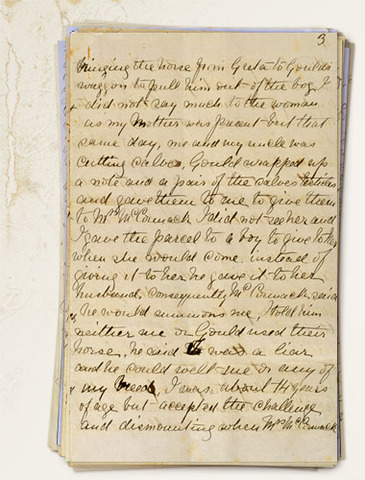 3
bringing the horse from Greta to Goulds
waggon to pull him out of the bog, I
did not say much to the woman
as my Mother was present but that
same day, me and my uncle was
cutting calves, Gould wrapped up
a note and a pair of the calves testicles
and gave them to me to give them
to Mrs McCormack I did not see her and
I gave the parcel to a boy to give to her
when she would come. instead of
giving it to her he gave it to her
husband, consequently McCormack said
he would summons me, I told him
neither me or Gould used their
horse, he said I was a liar
and he could welt me or any of
my breed, I was about 14 years
of age but accepted the challenge
and dismounting when Mrs McCormack